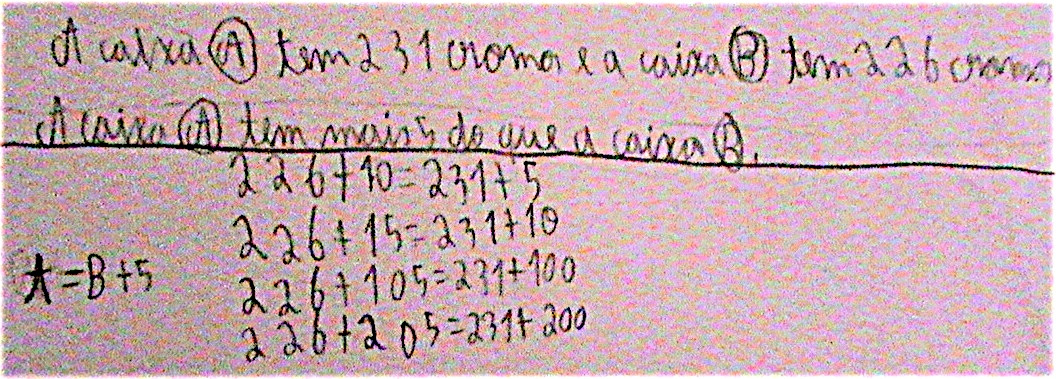 A caixa A tem 231 cromos e a caixa B tem 226 cromos
A caixa A tem mais 5 do que a caixa B.
226+10=231+5
226+15=231+10
A=B+5
226+105=231+100
226+205=231+200